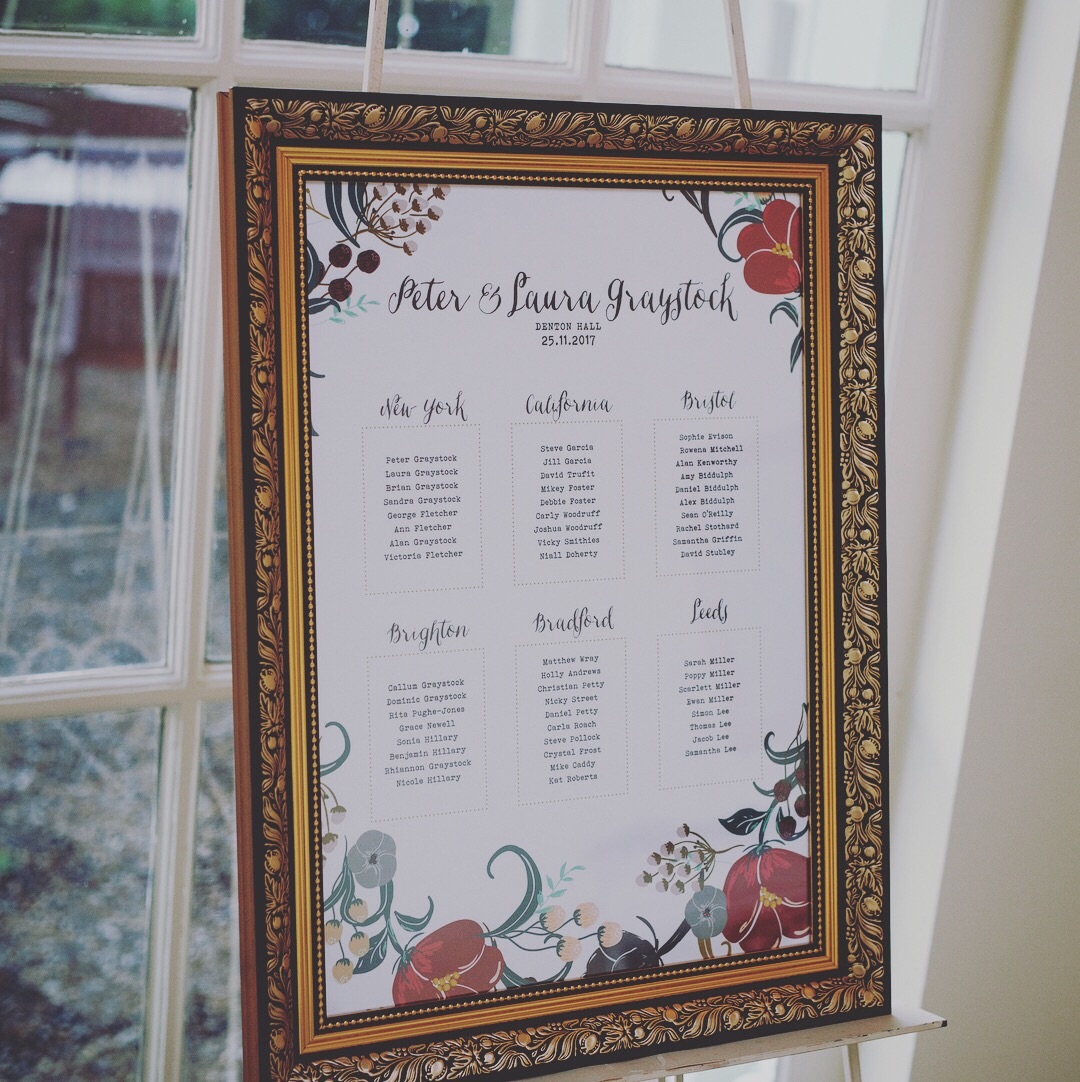 Peter & Laura Graystock
DENTON HALL
25.11.2017
New York
Peter Graystock
Laura Graystock
Brian Graystock
Sandra Graystock
George Fletcher
Ann Fletcher
Alan Graystock
Victoria Fletcher
California
Steve Garcia
Jill Garcia
David Trufit
Mikey Foster
Debbie Foster
Carly Woodruff
Joshua Woodruff
Vicky Smithies
Niall Doherty
Bristol
Sophie Evison
Rowena Mitchell
Alan Kenworthy
Amy Biddulph
Daniel Biddulph
Alex Biddulph
Sean O'Reilly
Rachel Stothard
Samantha Griffin
David Stubley
Brighton
Callum Graystock
Dominic Graystock
Rita Pughe-Jones
Grace Newell
Sonia Hillary
Benjamin Hillary
Rhiannon Graystock
Nicole Hillary
Bradford
Matthew Wray
Holly Andrews
Christian Petty
Nicky Street
Daniel Petty
Carla Roach
Steve Pollock
Crystal Frost
Mike Caddy
Kat Roberts
Leeds
Sarah Miller
Poppy Miller
Scarlett Miller
Ewan Miller
Simon Lee
Thomas Lee
Jacob Lee
Samantha Lee